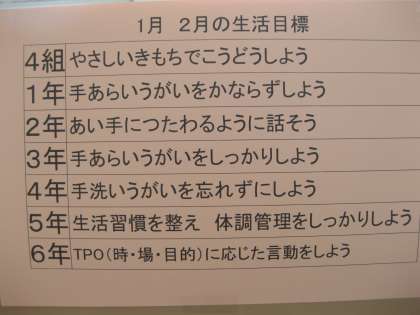 1月 2月の生活目標
4組 やさしいきもちでこうどうしよう
1年 手あらいうがいをかならずしよう
2年 あい手につたわるように話そう
3年 手あらいうがいをしっかりしよう
4年 手洗いうがいを忘れずにしよう
5年 生活習慣を整え 体調管理をしっかりしよう
6年 TPO(時・場・目的)に応じた言動をしよう